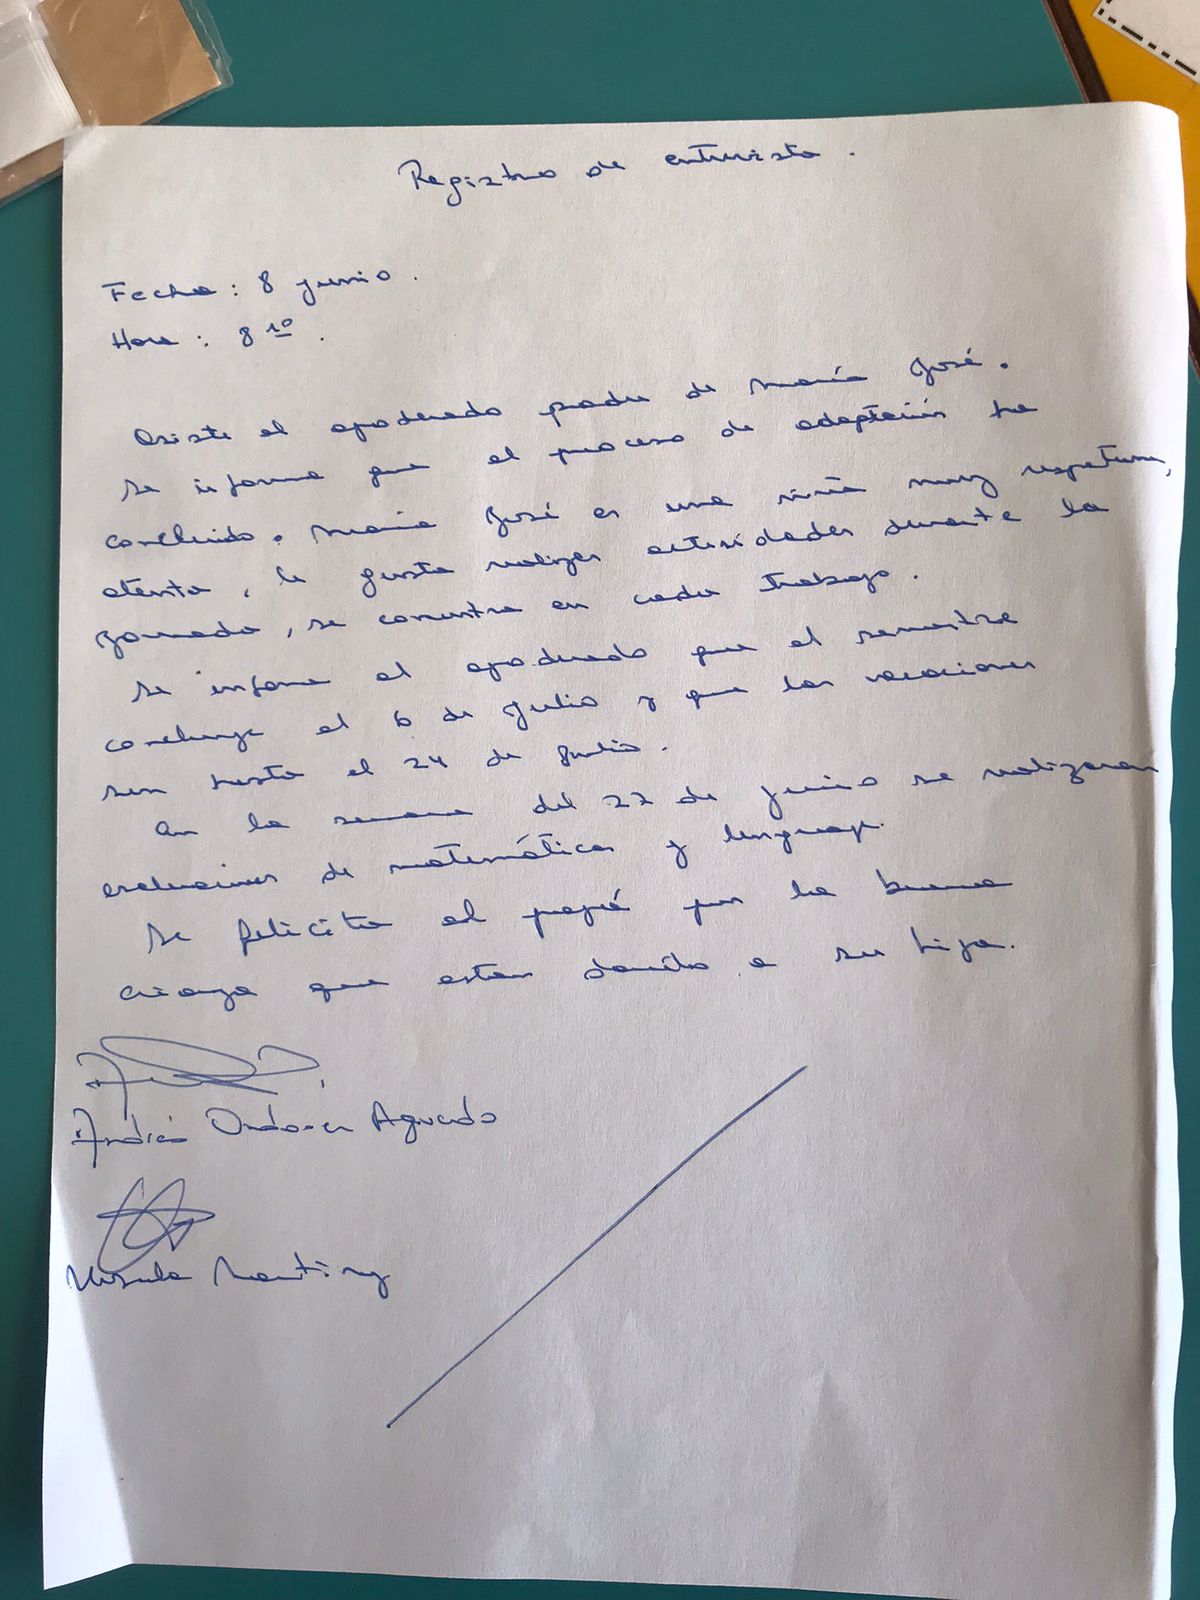 Registro de entrevista.
Fecha: 8 junio.
Hora: 8 10.
Asiste el apoderado padre de María José.
Se informa que el proceso de adaptación ha
concluido. María José es una niña muy respetuosa,
atenta, le gusta realizar actividades durante la
jornada, se concentra en cada trabajo.
Se informa al apoderado que el semestre
concluye el 6 de Julio y que las vacaciones
son hasta el 24 de Julio.
En la semana del 22 de junio se realizaran
evaluaciones de matemáticas y lenguaje.
Se felicita al papá por la buena
crianza que estan dando a su hija.
Andrés Agurdo
Ursula